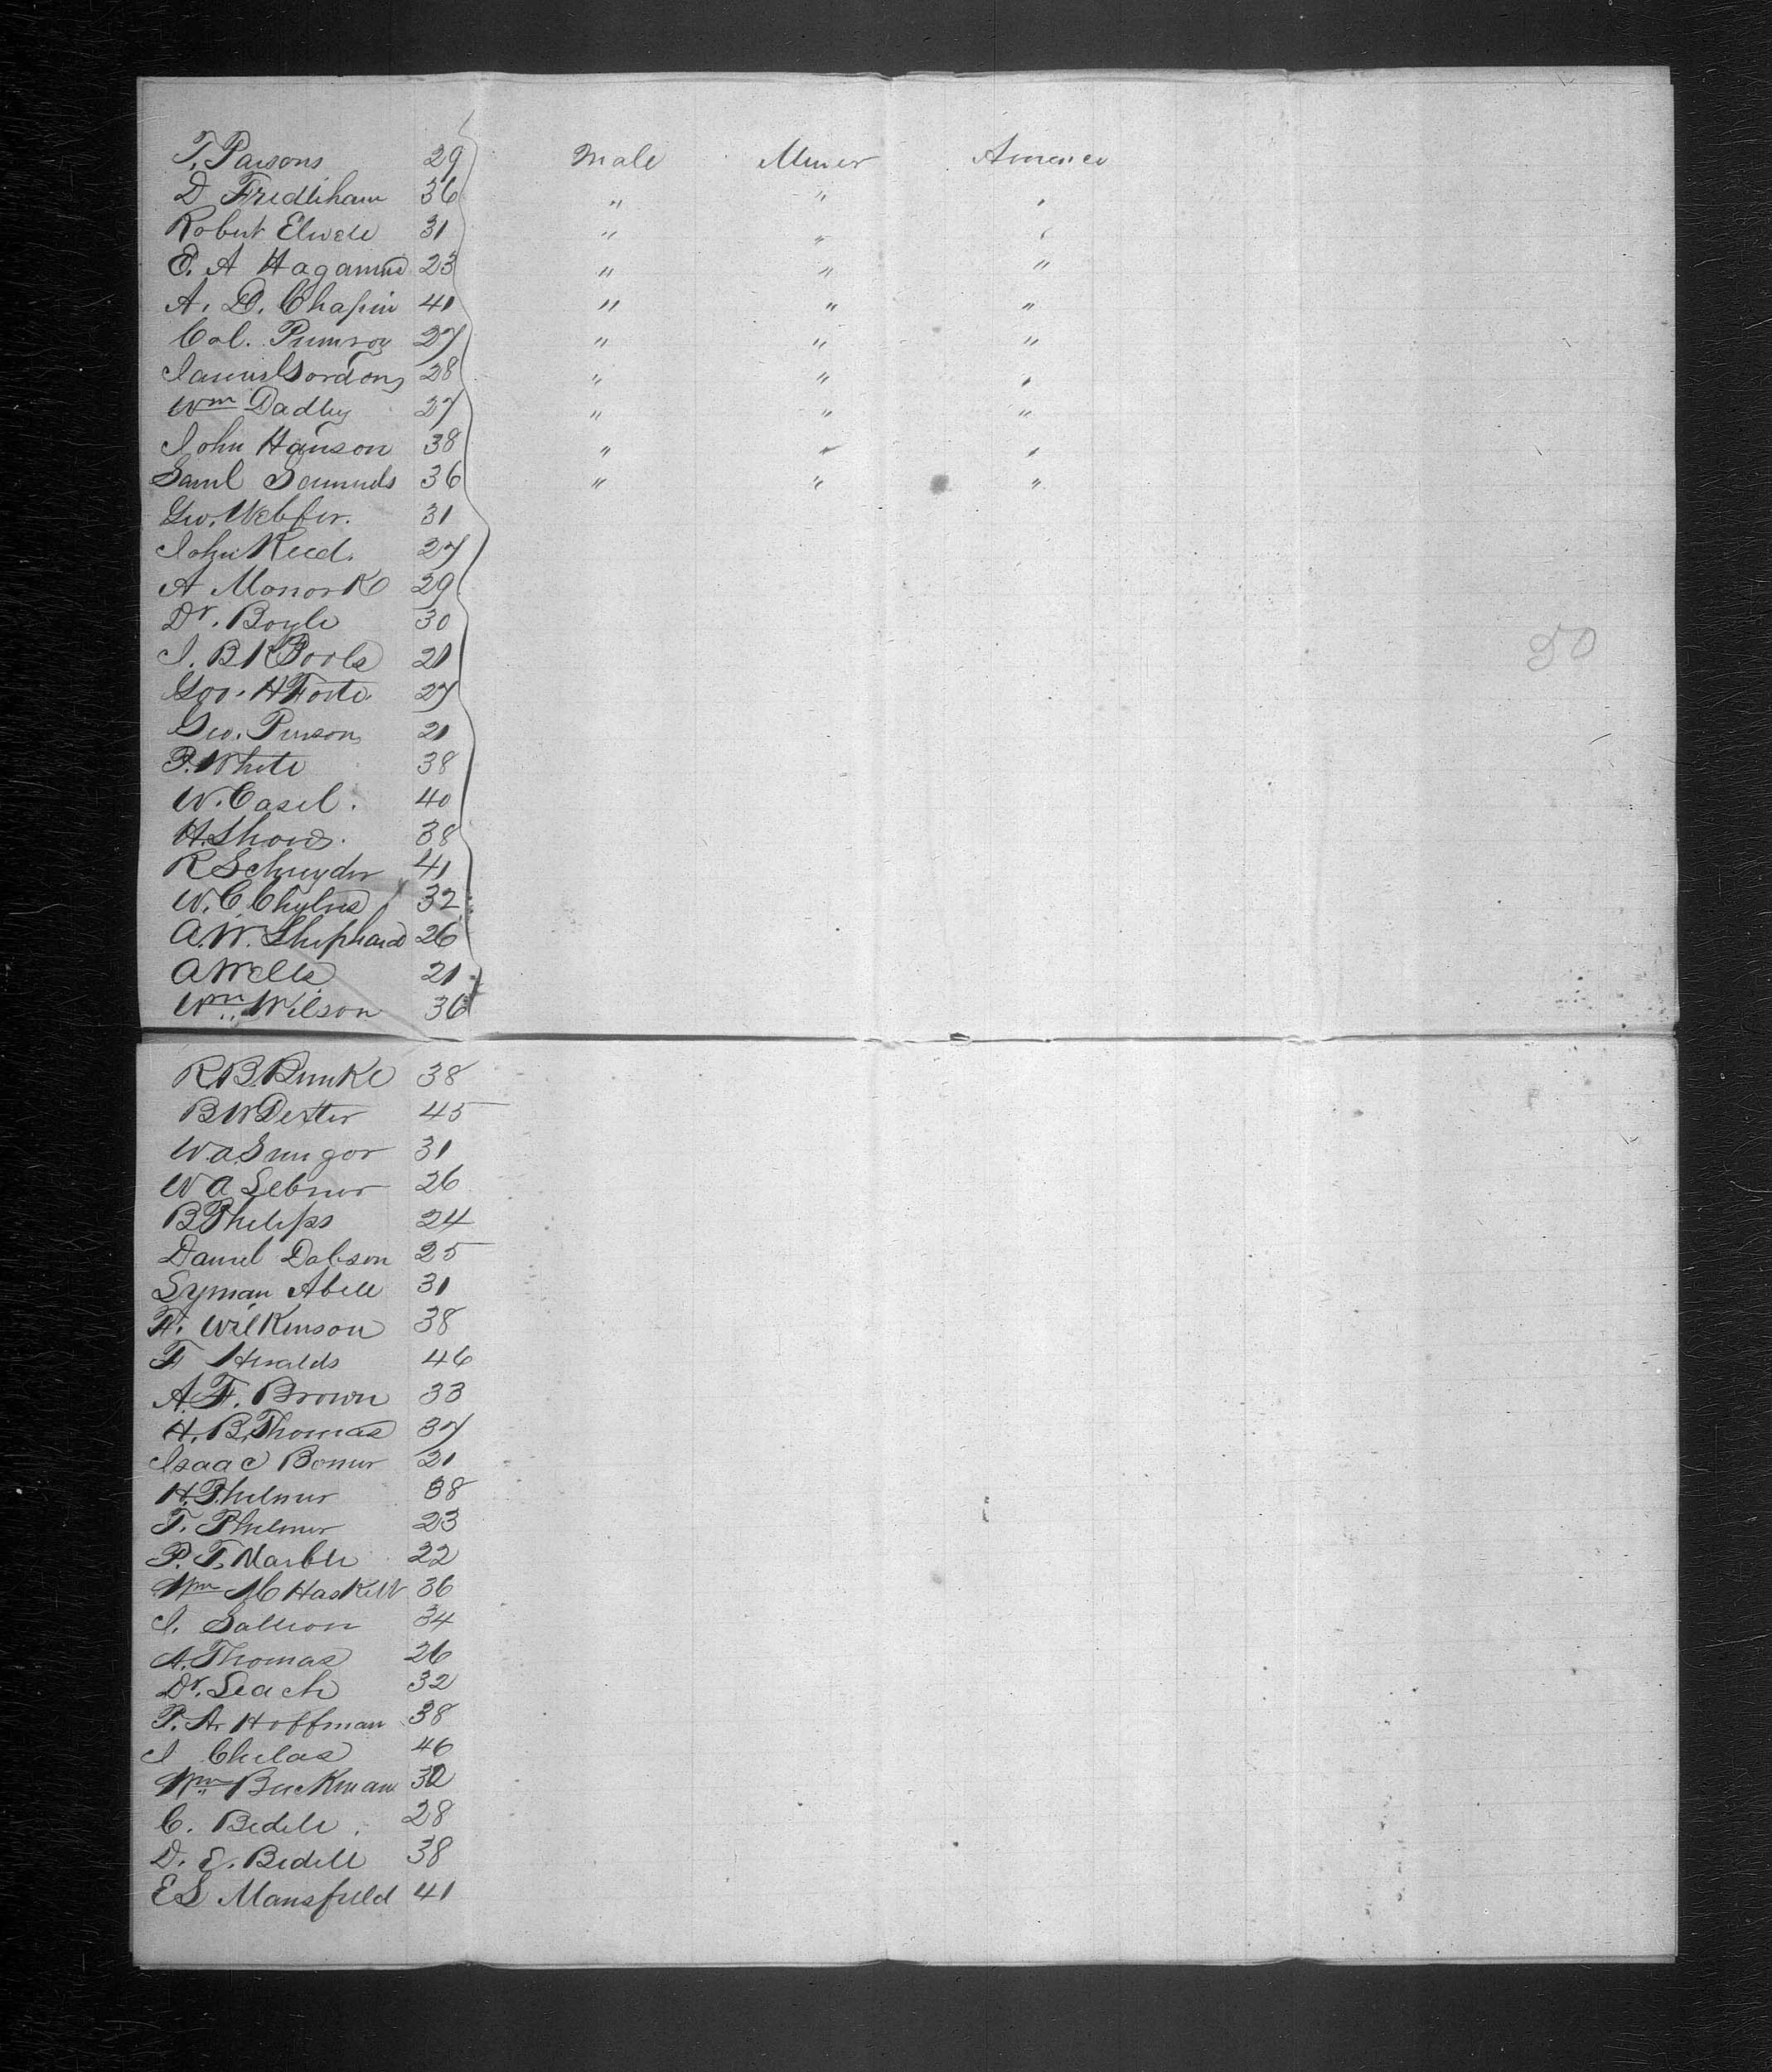 T. Parsons 29 Male Miner America
D Fredliham 36 " " "
Robert Elwell 31 " " "
E. A Hagamud 23 " " "
A. D. Chapin 41 " " "
Col. Pumroy 27 " " "
James Gordon 28 " " "
Wm Dadley 27 " " "
John Hanson 38 " " "
Saml Semmds 36 " " "
Geo. Webster. 31
John Reed. 27
A Monork 29
Dr. Boyle 30
J. B K Pools 21
Geo. H Foote. 27
Geo. Pierson 21
P. White 38
W. Casel. 40
H. Shows. 38
R Schuyder 41
W. C. 32
A. W. Shephard 26
A Wells 21
Wm. Wilson 36
50
R. B. Bunke 38
B W Dexter 45
W. A. 31
W A Lebner 26
B Philips 24
Daniel Dobson 25
Lyman Abell 31
F. Wilkinson 38
F Heralds 46
A. F. Brown 33
H. B. Thomas 37
Isaac Bonner 21
H. Philmer 38
T. Philmer 23
P. T. Marble 22
Wm M Haskell 36
J. Sallion 34
A. Thomas 26
Dr. Leach 32
P. A. Hoffman 38
J Childs 46
Wm. Buckman 32
C. Bedell. 28
D. E. Bedell 38
E L Mansfield 41